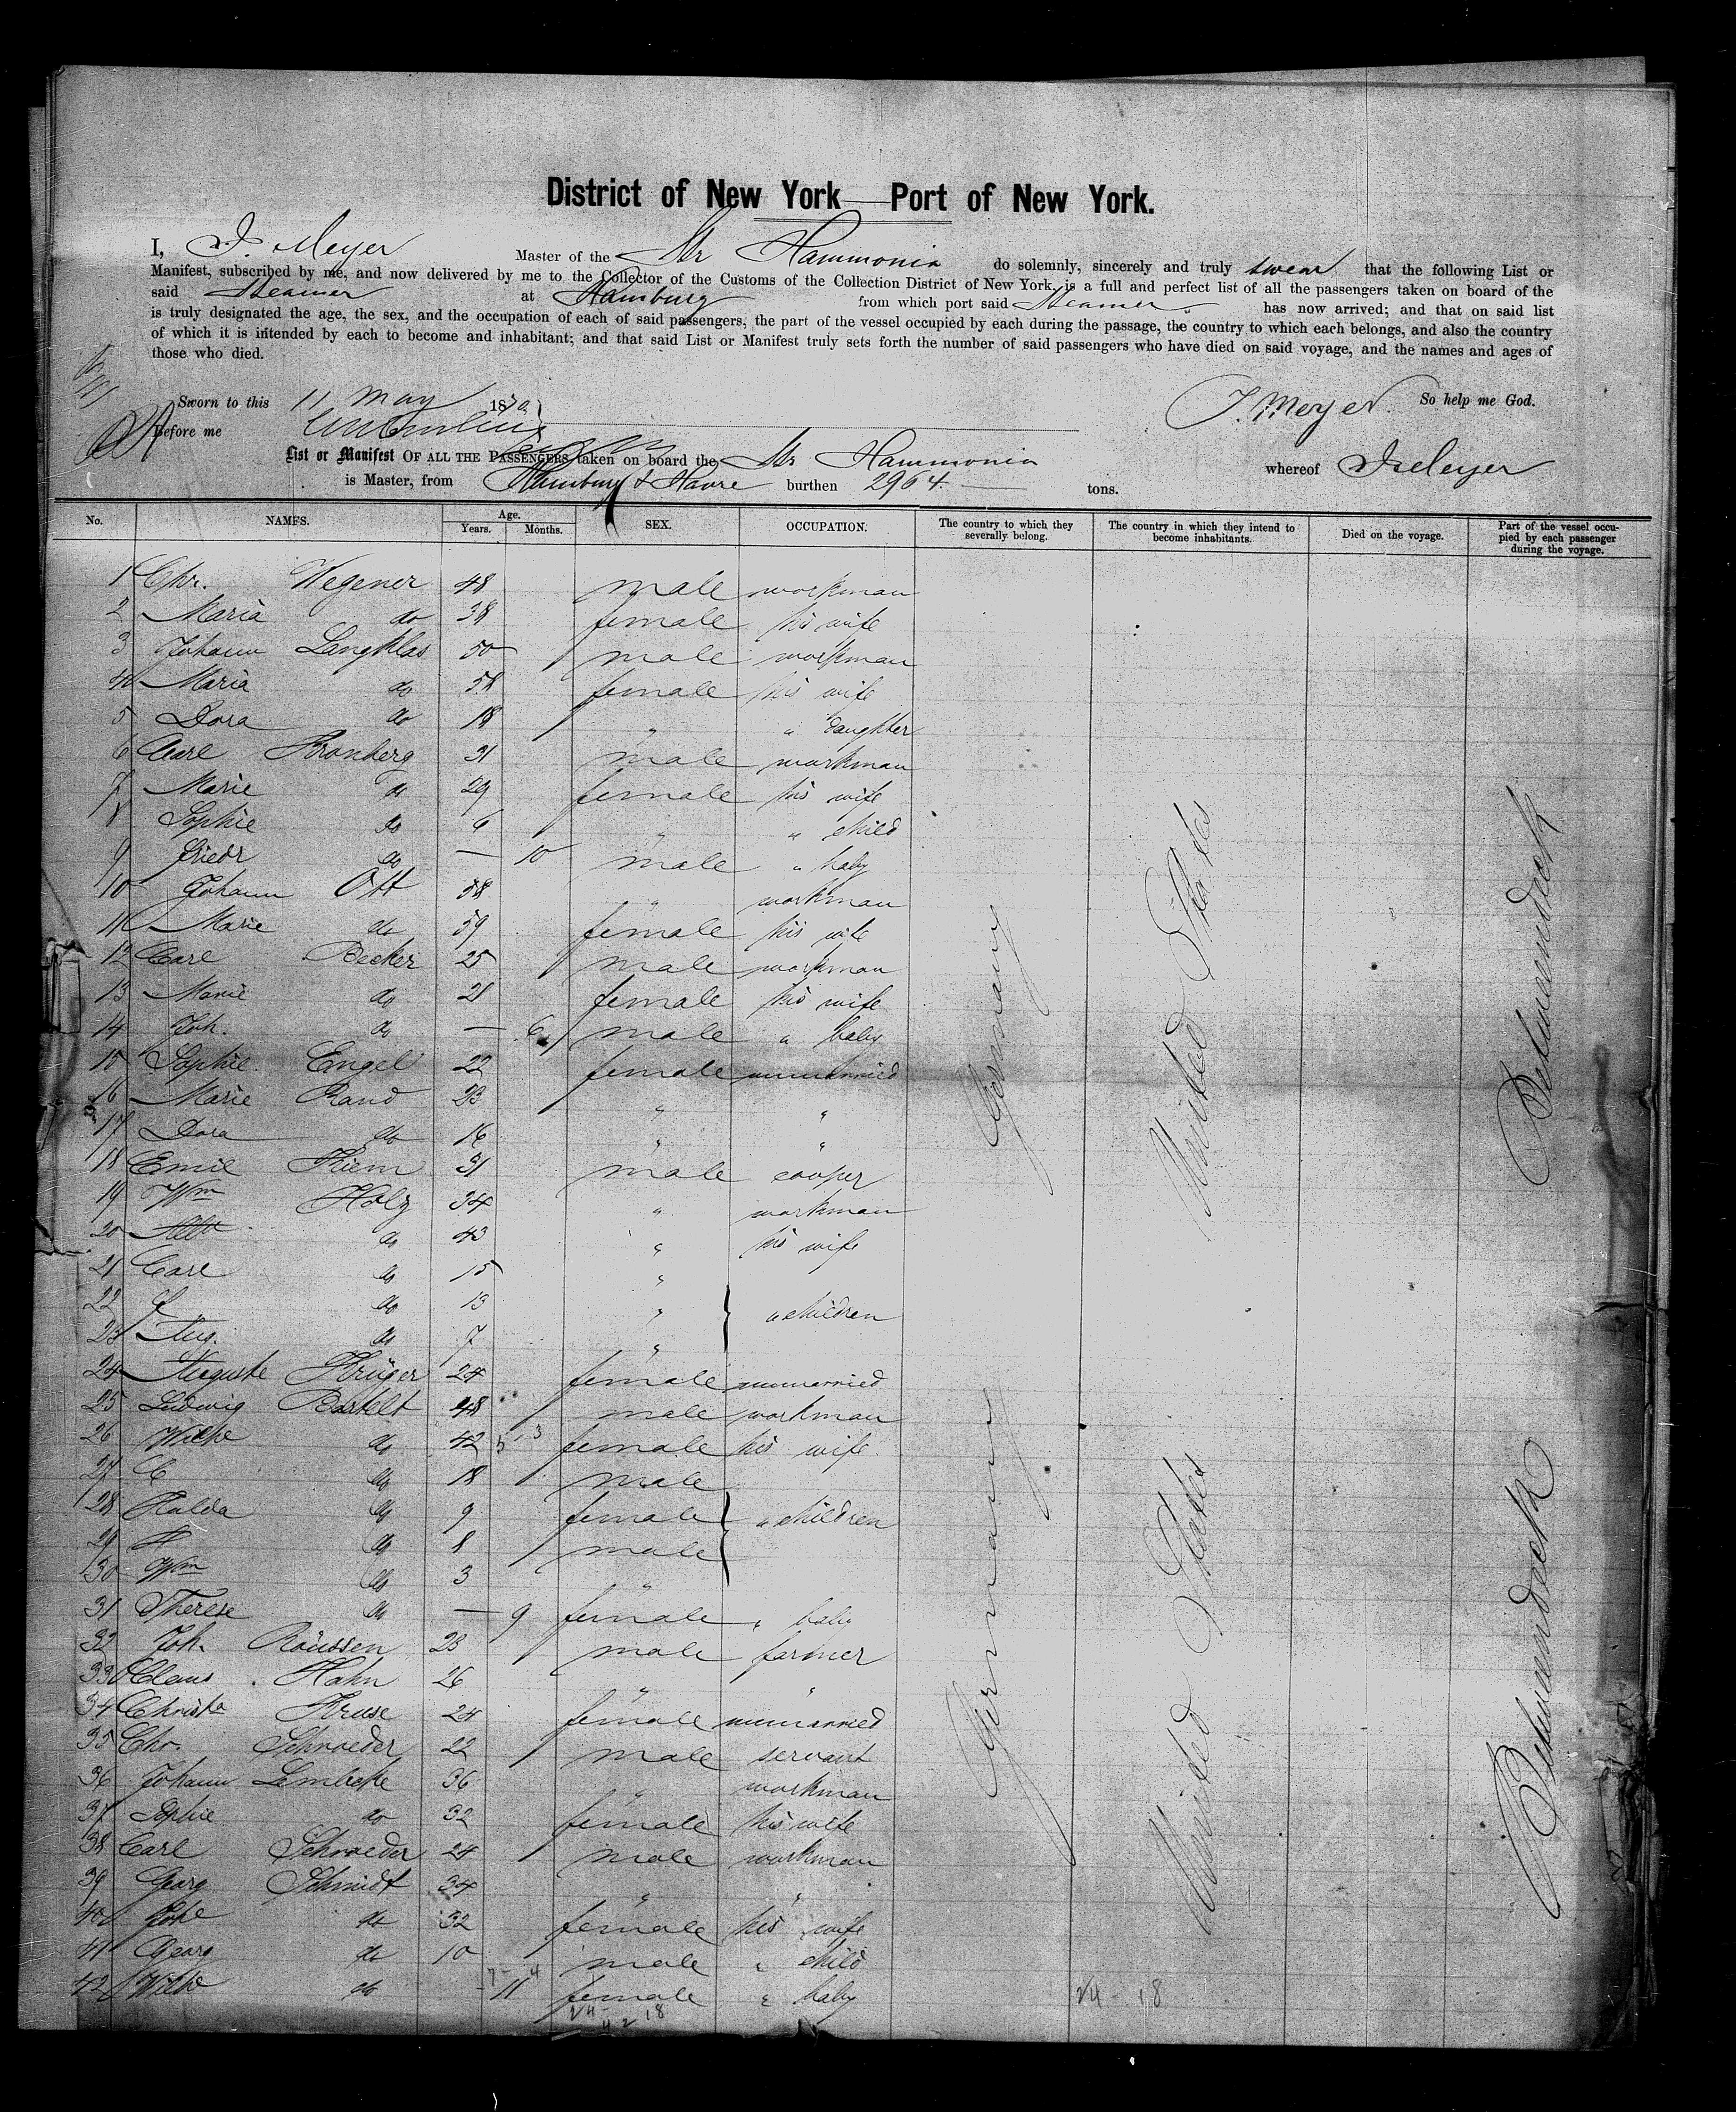 District of New York Port of New York.
I, Meyer Master of the Str Hammonia do solemnly, sincerely and truly swear that the following List or
Manifest, subscribed by me, and now delivered by me to the Collector of the Customs of the Collection District of New York, is a full and perfect list of all the passengers taken on board of the
said Steamer at Hamburg from which port said Steamer has now arrived; and that on said list
is truly designated the age, the sex, and the occupation of each of said passengers, the part of the vessel occupied by each during the passage, the country to which each belongs, and also the country
of which it is intended by each to become and inhabitant; and that said List or Manifest truly sets forth the number of said passengers who have died on said voyage, and the names and ages of
those who died.
Sworn to this 11 May 1870 Meyer. So help me God.
Before me
List or Manifest OF ALL THE PASSENGERS taken on board the Str Hammonia whereof Meyer
is Master, from Hamburg & Havre burthen 2964 tons.
No. NAMES. Age. Years. Months. SEX. OCCUPATION. The country to which they severally belong. The country in which they intend to become inhabitants. Died on the voyage. Part of the vessel occupied by each passenger during the voyage.
1 Chr. Wegener 48 male workman
2 Maria do 38 female his wife
3 Johann Langklas 50 male workman
4 Maria do 58 female his wife
5 Dora do 18 " " daughter
6 Carl Bronberg 31 male workman
7 Marie do 29 female his wife
8 Sophie do 6 " " child
9 Friedr do — 10 male " baby
10 Johann Ott 58 " workman
11 Marie do 59 female his wife
12 Carl Becker 25 male workman
13 Marie do 21 female his wife
14 Joh. do — 6 male " baby
15 Sophie Engel 22 female unmarried
16 Marie Rand 23 " "
17 Dora do 16 " "
18 Emil Thiem 31 male cooper
19 Wm Holz 34 " workman
20 do 43 " his wife
21 Carl do 15 "
22 do 13 " " children
23 Aug. do 7 "
24 Auguste Krüger 24 female unmarried
25 Ludwig Bartelt 48 male workman
26 Wilhe do 42 female his wife
27 C do 18 male
28 do 9 female " children
29 do 8 male
30 Wm do 3 "
31 Therese do — 9 female " baby
32 Joh. Roüssen 28 male farmer
33 Claus Hahn 26 " "
34 Christa Kruse 24 female unmarried
35 Chr. Schroeder 22 male servant
36 Johann Lembcke 36 " workman
37 Sophie do 32 female his wife
38 Carl Schroeder 24 male workman
39 Georg Schmidt 34 " "
40 do 32 female his wife
41 Georg do 10 male " child
42 Wilhe do - 11 female " baby
24 18
42
24 18
Germany
United States
Zwischendeck
Germany
United States
Zwischendeck